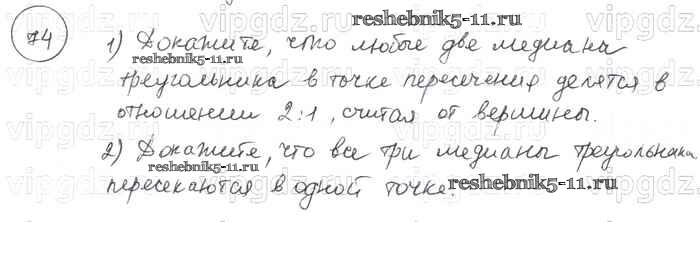 vipgdz.ru vipgdz.ru vipgdz.ru vipgdz.ru
reshebnik5-11.ru
74
1) Докажите, что любые две медиана
reshebnik5-11.ru
треугольника в точке пересечения делятся в
отношении 2:1, считая от вершины.
vipgdz.ru vipgdz.ru vipgdz.ru vipgdz.ru
2) Докажите, что все три медианы треугольника
reshebnik5-11.ru
пересекаются в одной точке.
reshebnik5-11.ru
vipgdz.ru vipgdz.ru vipgdz.ru vipgdz.ru